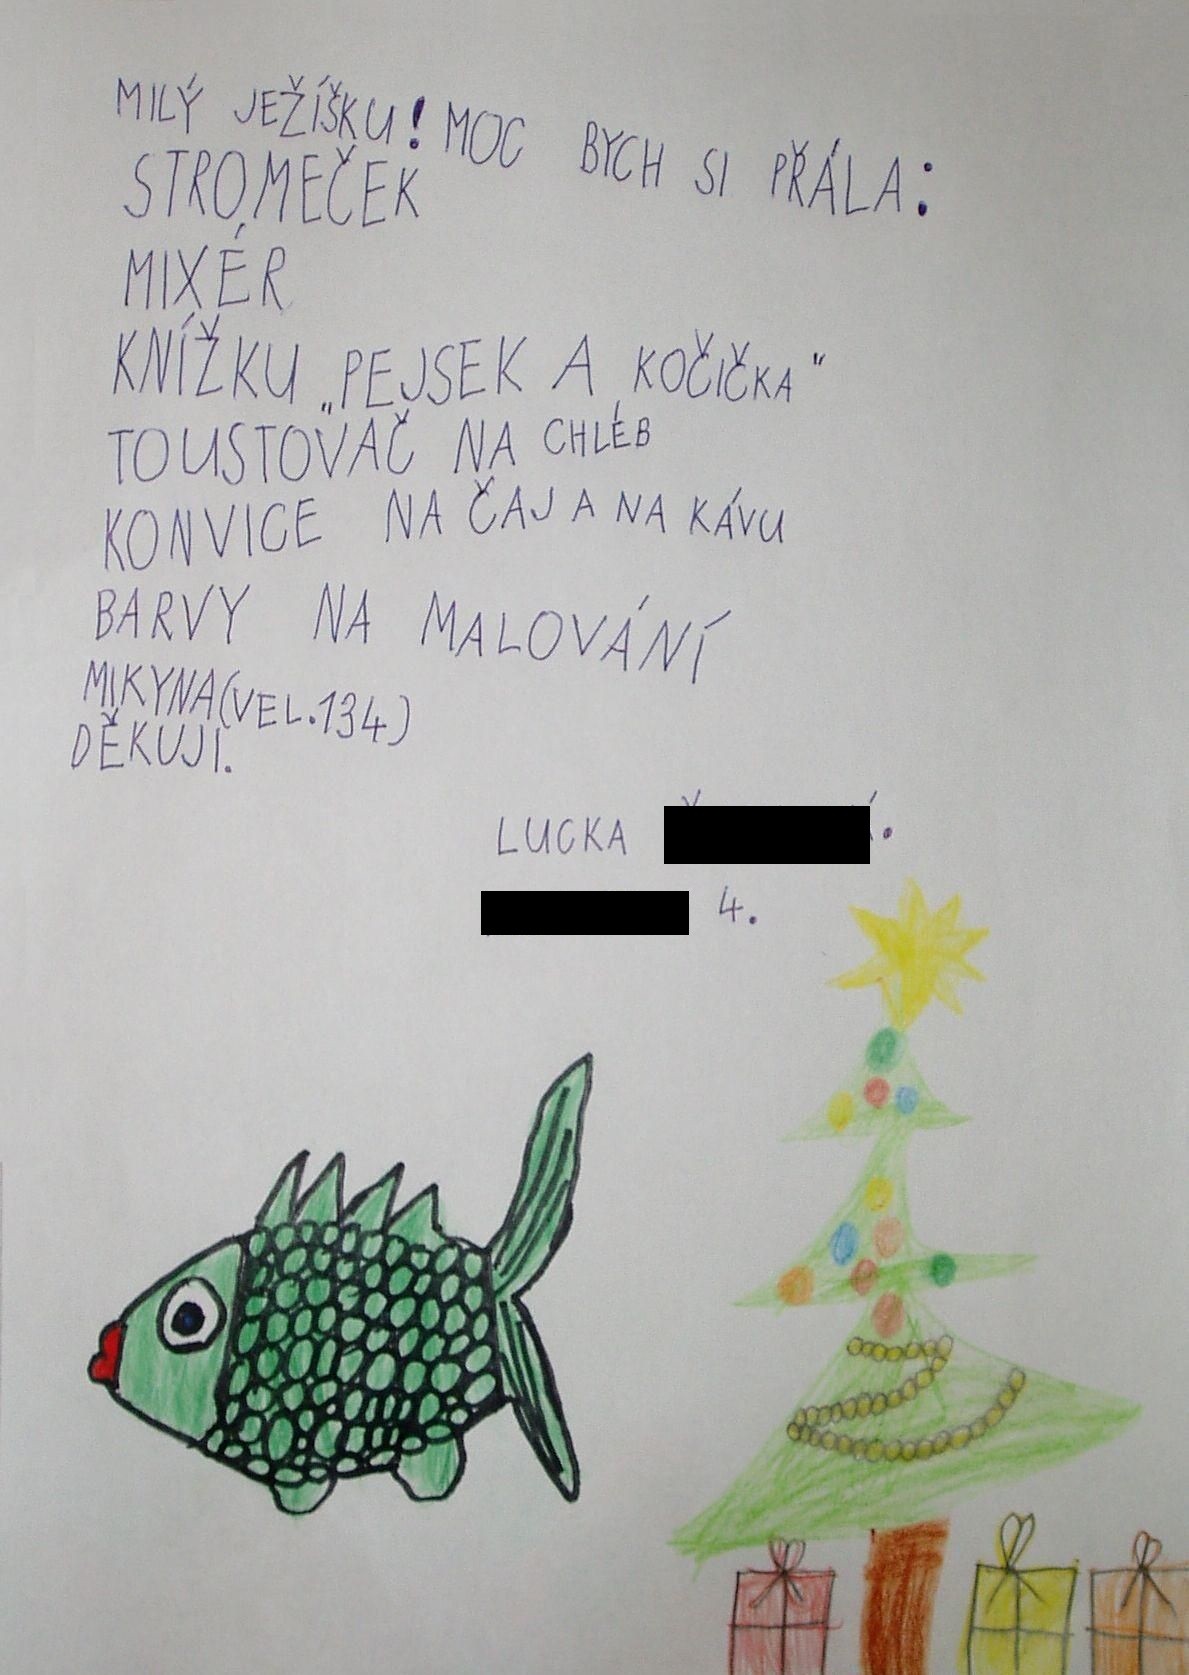 MILÝ JEŽÍŠKU! MOC BYCH SI PŘÁLA:
STROMEČEK
MIXÉR
KNÍŽKU „PEJSEK A KOČIČKA“
TOUSTOVAČ NA CHLÉB
KONVICE NA ČAJ A NA KÁVU
BARVY NA MALOVÁNÍ
MIKYNA(VEL.134)
DĚKUJI.
LUCKA
4.